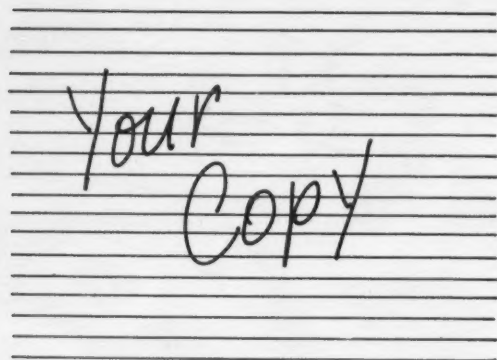 Your
Copy